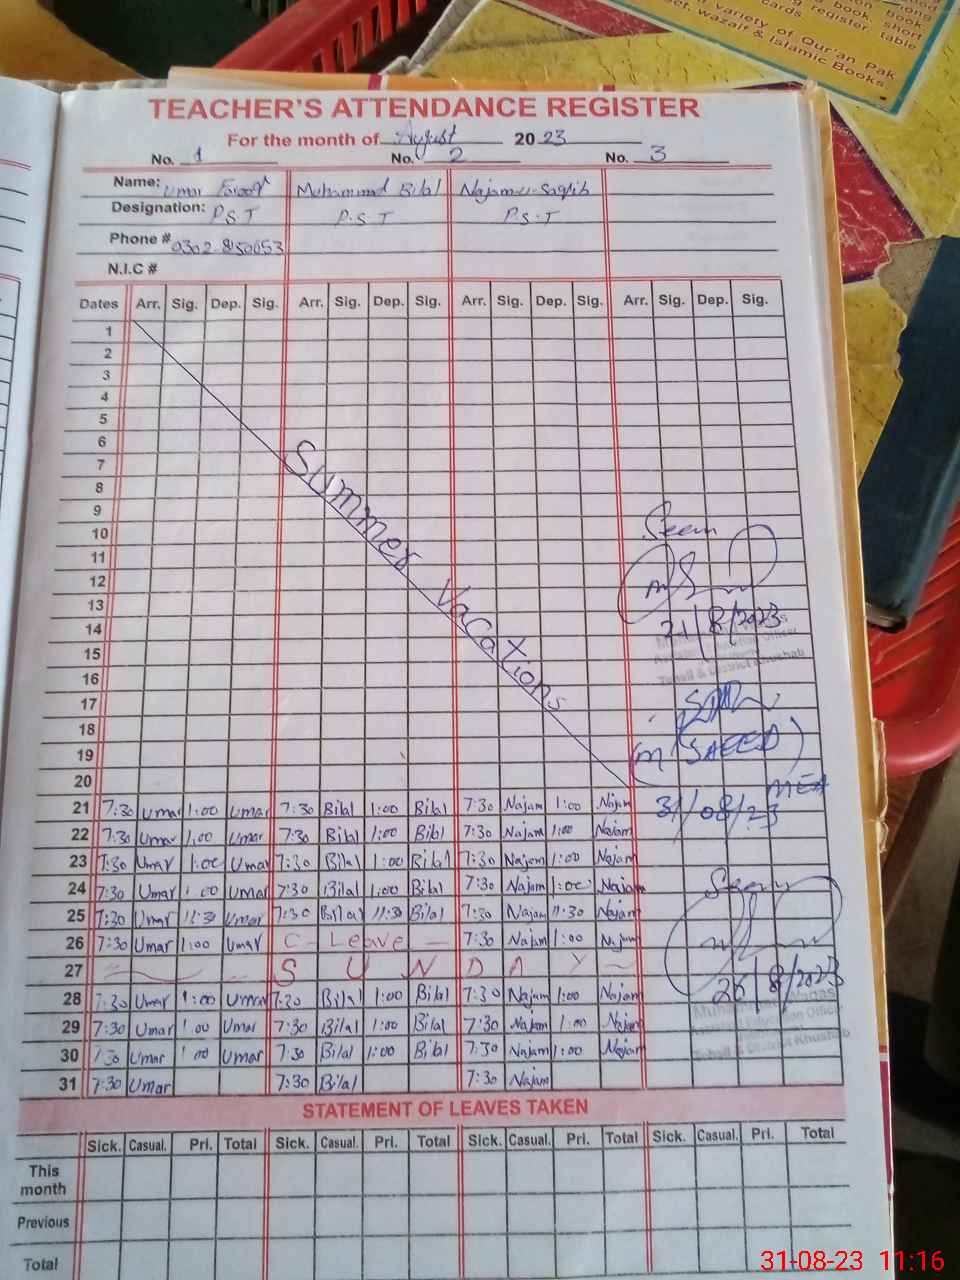 book book
cards short
ing register, table
variety of Qur'an Pak
set, wazaif & Islamic Books.
TEACHER'S ATTENDANCE REGISTER
For the month of August 2023
No. 1 No. 2 No. 3
Name: Umar Farooq Muhammad Bilal Najam-u-Saqib
Designation: P.S.T P.S.T P.S.T
Phone #
N.I.C #
Dates Arr. Sig. Dep. Sig. Arr. Sig. Dep. Sig. Arr. Sig. Dep. Sig. Arr. Sig. Dep. Sig.
1
2
3
4
5
6
7
8
9
10
11
12
13
14
15
16
17
18
19
20
Summer Vacations
Seen
21/8/2023
Tehsil & District Khushab
(M SAEED)
MEA
31/08/23
21 7:30 Umar 1:00 Umar 7:30 Bilal 1:00 Bilal 7:30 Najam 1:00 Najam
22 7:30 Umar 1:00 Umar 7:30 Bilal 1:00 Bilal 7:30 Najam 1:00 Najam
23 7:30 Umar 1:00 Umar 7:30 Bilal 1:00 Bilal 7:30 Najam 1:00 Najam
24 7:30 Umar 1:00 Umar 7:30 Bilal 1:00 Bilal 7:30 Najam 1:00 Najam
25 7:30 Umar 11:30 Umar 7:30 Bilal 11:30 Bilal 7:30 Najam 11:30 Najam
26 7:30 Umar 1:00 Umar C - Leave - 7:30 Najam 1:00 Najam
27 SUNDAY
28 7:30 Umar 1:00 Umar 7:30 Bilal 1:00 Bilal 7:30 Najam 1:00 Najam
29 7:30 Umar 1:00 Umar 7:30 Bilal 1:00 Bilal 7:30 Najam 1:00 Najam
30 7:30 Umar 1:00 Umar 7:30 Bilal 1:00 Bilal 7:30 Najam 1:00 Najam
31 7:30 Umar 7:30 Bilal 7:30 Najam
Seen
26/8/2023
Assistant Education Officer
Tehsil & District Khushab
STATEMENT OF LEAVES TAKEN
Sick. Casual. Pri. Total Sick. Casual. Pri. Total Sick. Casual. Pri. Total Sick. Casual. Pri. Total
This
month
Previous
Total
31-08-23 11:16